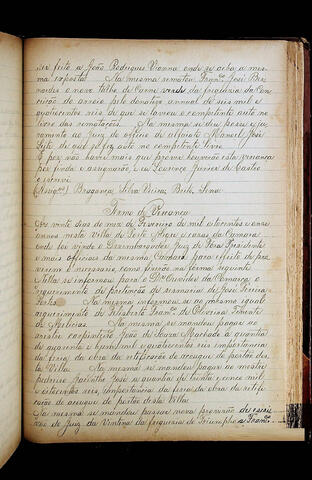 ser feito a João Rodrigues Vianna onde se acha a mes-
ma imposta. Na mesma rematou Franco José Ber-
nardes o novo talho de Carne verde da freguesia da Con-
ceição do arroio pelo donativo annual de seis mil e
quatrocentos reis de que se lavrou o competente auto no
livro das rematações. Na mesma se deu posse e ju-
ramento ao Juiz do officio de alfaiate Manoel José
Leite de que se fez auto no competente livro.
E por não haver mais que prover houverão esta vereança
por finda e assignarão, e eu Lourenço Junior de Castro
o escrevi
(Assignos) Bragança, Silva, Vieira, Brito, Lima
Termo de Vereança
Aos vinte dias do mez de Fevereiro de mil oitocentos e onze
annos nesta Villa de Porto Alegre e casas da Camara
onde foi vindo o Dezembargador Juiz de Fora Presidente
e mais officiaes da mesma Camara para effeito de pro-
verem o necessario como fizerão na forma seguinte
Nella se informou para o Dr. Ouvidor da Comarca o
requerimento de pertenção de sesmaria de José Pereira
Na mesma informou se ao mesmo igual
requerimento de Felisberto Franco de Oliveira Tenente
de Melicias. Na mesma se mandou pagar ao
mestre carpinteiro João de Souza Machado a quantia
de quarenta e hum mil e quatrocentos reis importancia
da feria da obra da retificação do acougue do portão des-
ta Villa. Na mesma se mandou pagar ao mestre
pedreiro Jacintho José a quantia de trinta e cinco mil
e oitocentos reis importancia da feria da obra da retifi-
cação do acougue do portão desta Villa.
Na mesma se mandou passar nova provisão de escri-
vão do Juiz da Vintena da freguesia do Triumpho a Franco